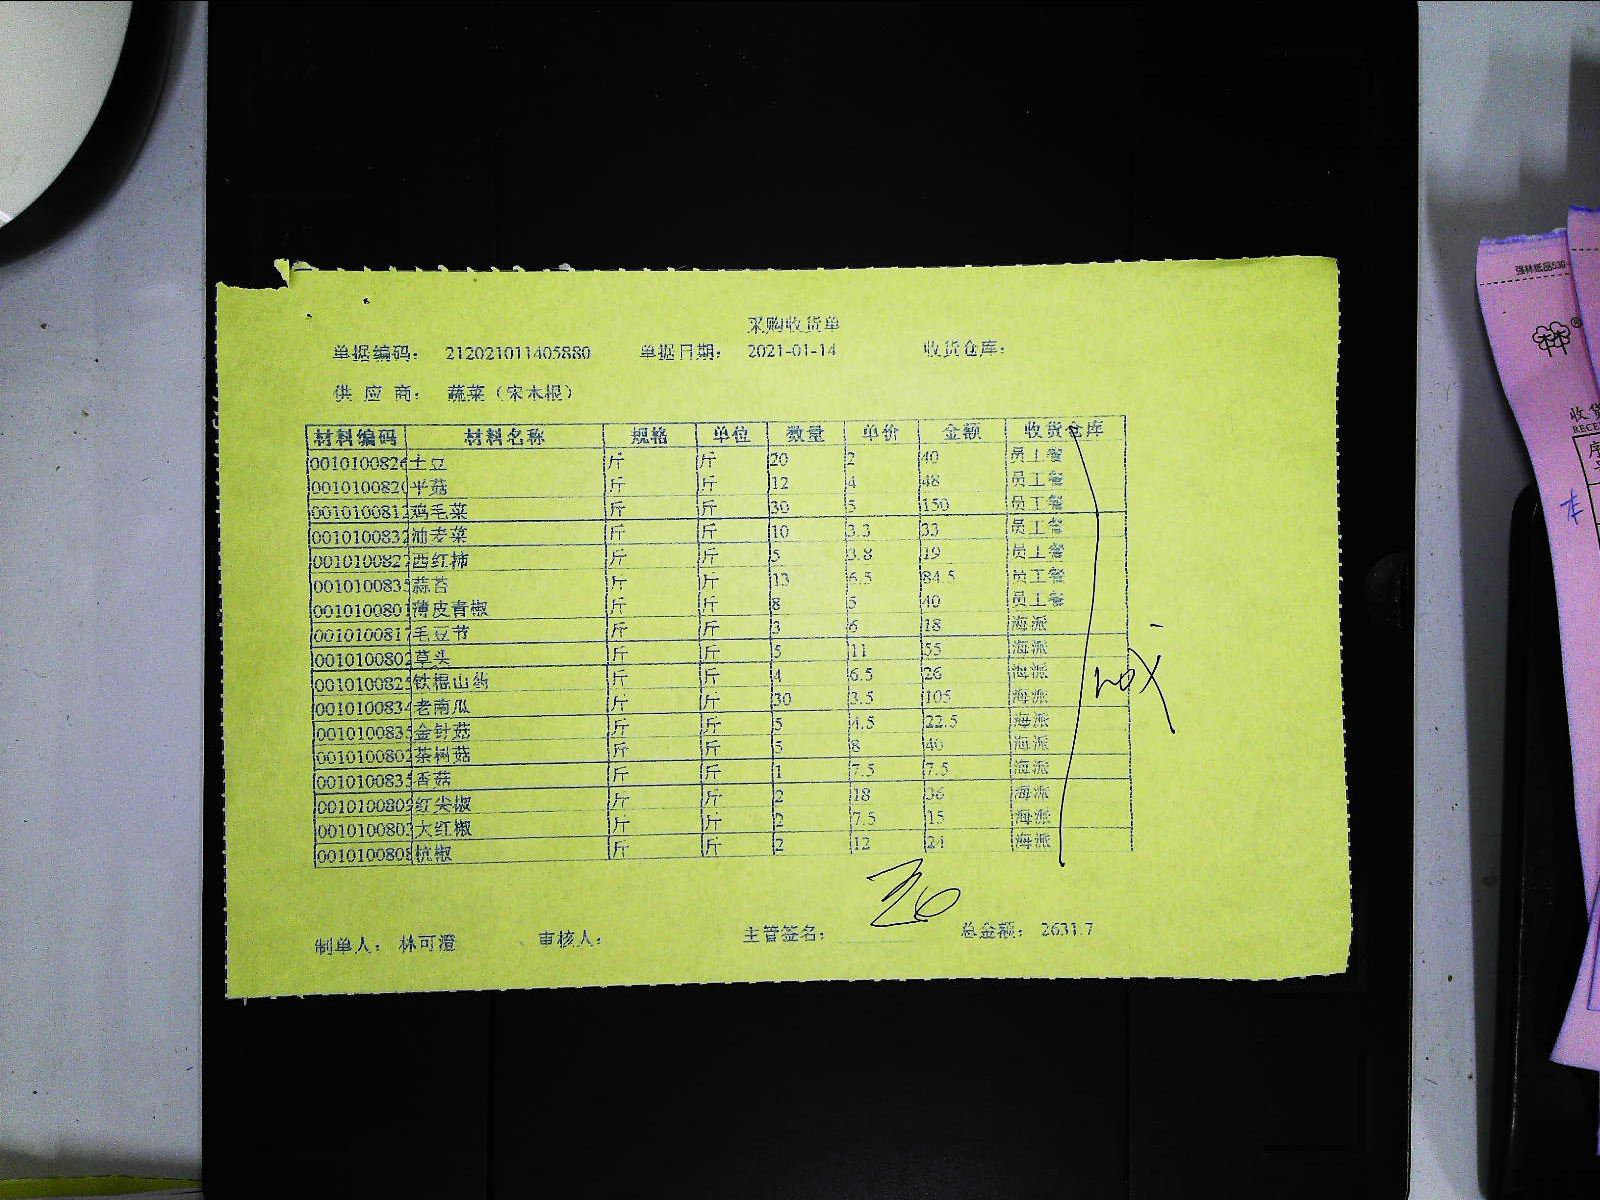 采购收货单
单据编码： 212021011405880 单据日期： 2021-01-14 收货仓库：
供 应 商： 蔬菜（宋木根）
材料编码 材料名称 规格 单位 数量 单价 金额 收货仓库
0010100826 土豆 斤 斤 20 2 40 员工餐
0010100820 平菇 斤 斤 12 4 48 员工餐
0010100812 鸡毛菜 斤 斤 30 5 150 员工餐
0010100832 油麦菜 斤 斤 10 3.3 33 员工餐
0010100827 西红柿 斤 斤 5 3.8 19 员工餐
0010100835 蒜苔 斤 斤 13 6.5 84.5 员工餐
0010100801 薄皮青椒 斤 斤 8 5 40 员工餐
0010100817 毛豆节 斤 斤 3 6 18 海派
0010100802 草头 斤 斤 5 11 55 海派
0010100825 铁棍山药 斤 斤 4 6.5 26 海派
0010100834 老南瓜 斤 斤 30 3.5 105 海派
0010100835 金针菇 斤 斤 5 4.5 22.5 海派
0010100802 茶树菇 斤 斤 5 8 40 海派
0010100835 香菇 斤 斤 1 7.5 7.5 海派
0010100809 红尖椒 斤 斤 2 18 36 海派
0010100803 大红椒 斤 斤 2 7.5 15 海派
0010100808 杭椒 斤 斤 2 12 24 海派
制单人： 林可澄 审核人： 主管签名： 总金额： 2631.7
强林纸品530
收货
RECE
序